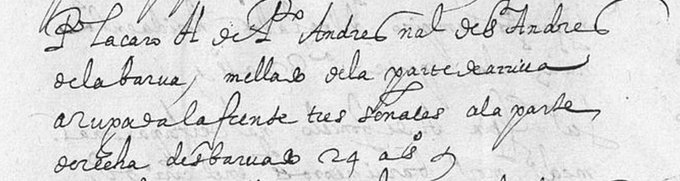 Po lacaro H de Po Andres nal de sn Andres
de la barua, mellado de la parte de arriua
arrugada la frente tres señales a la parte
derecha desbaruado 24 as